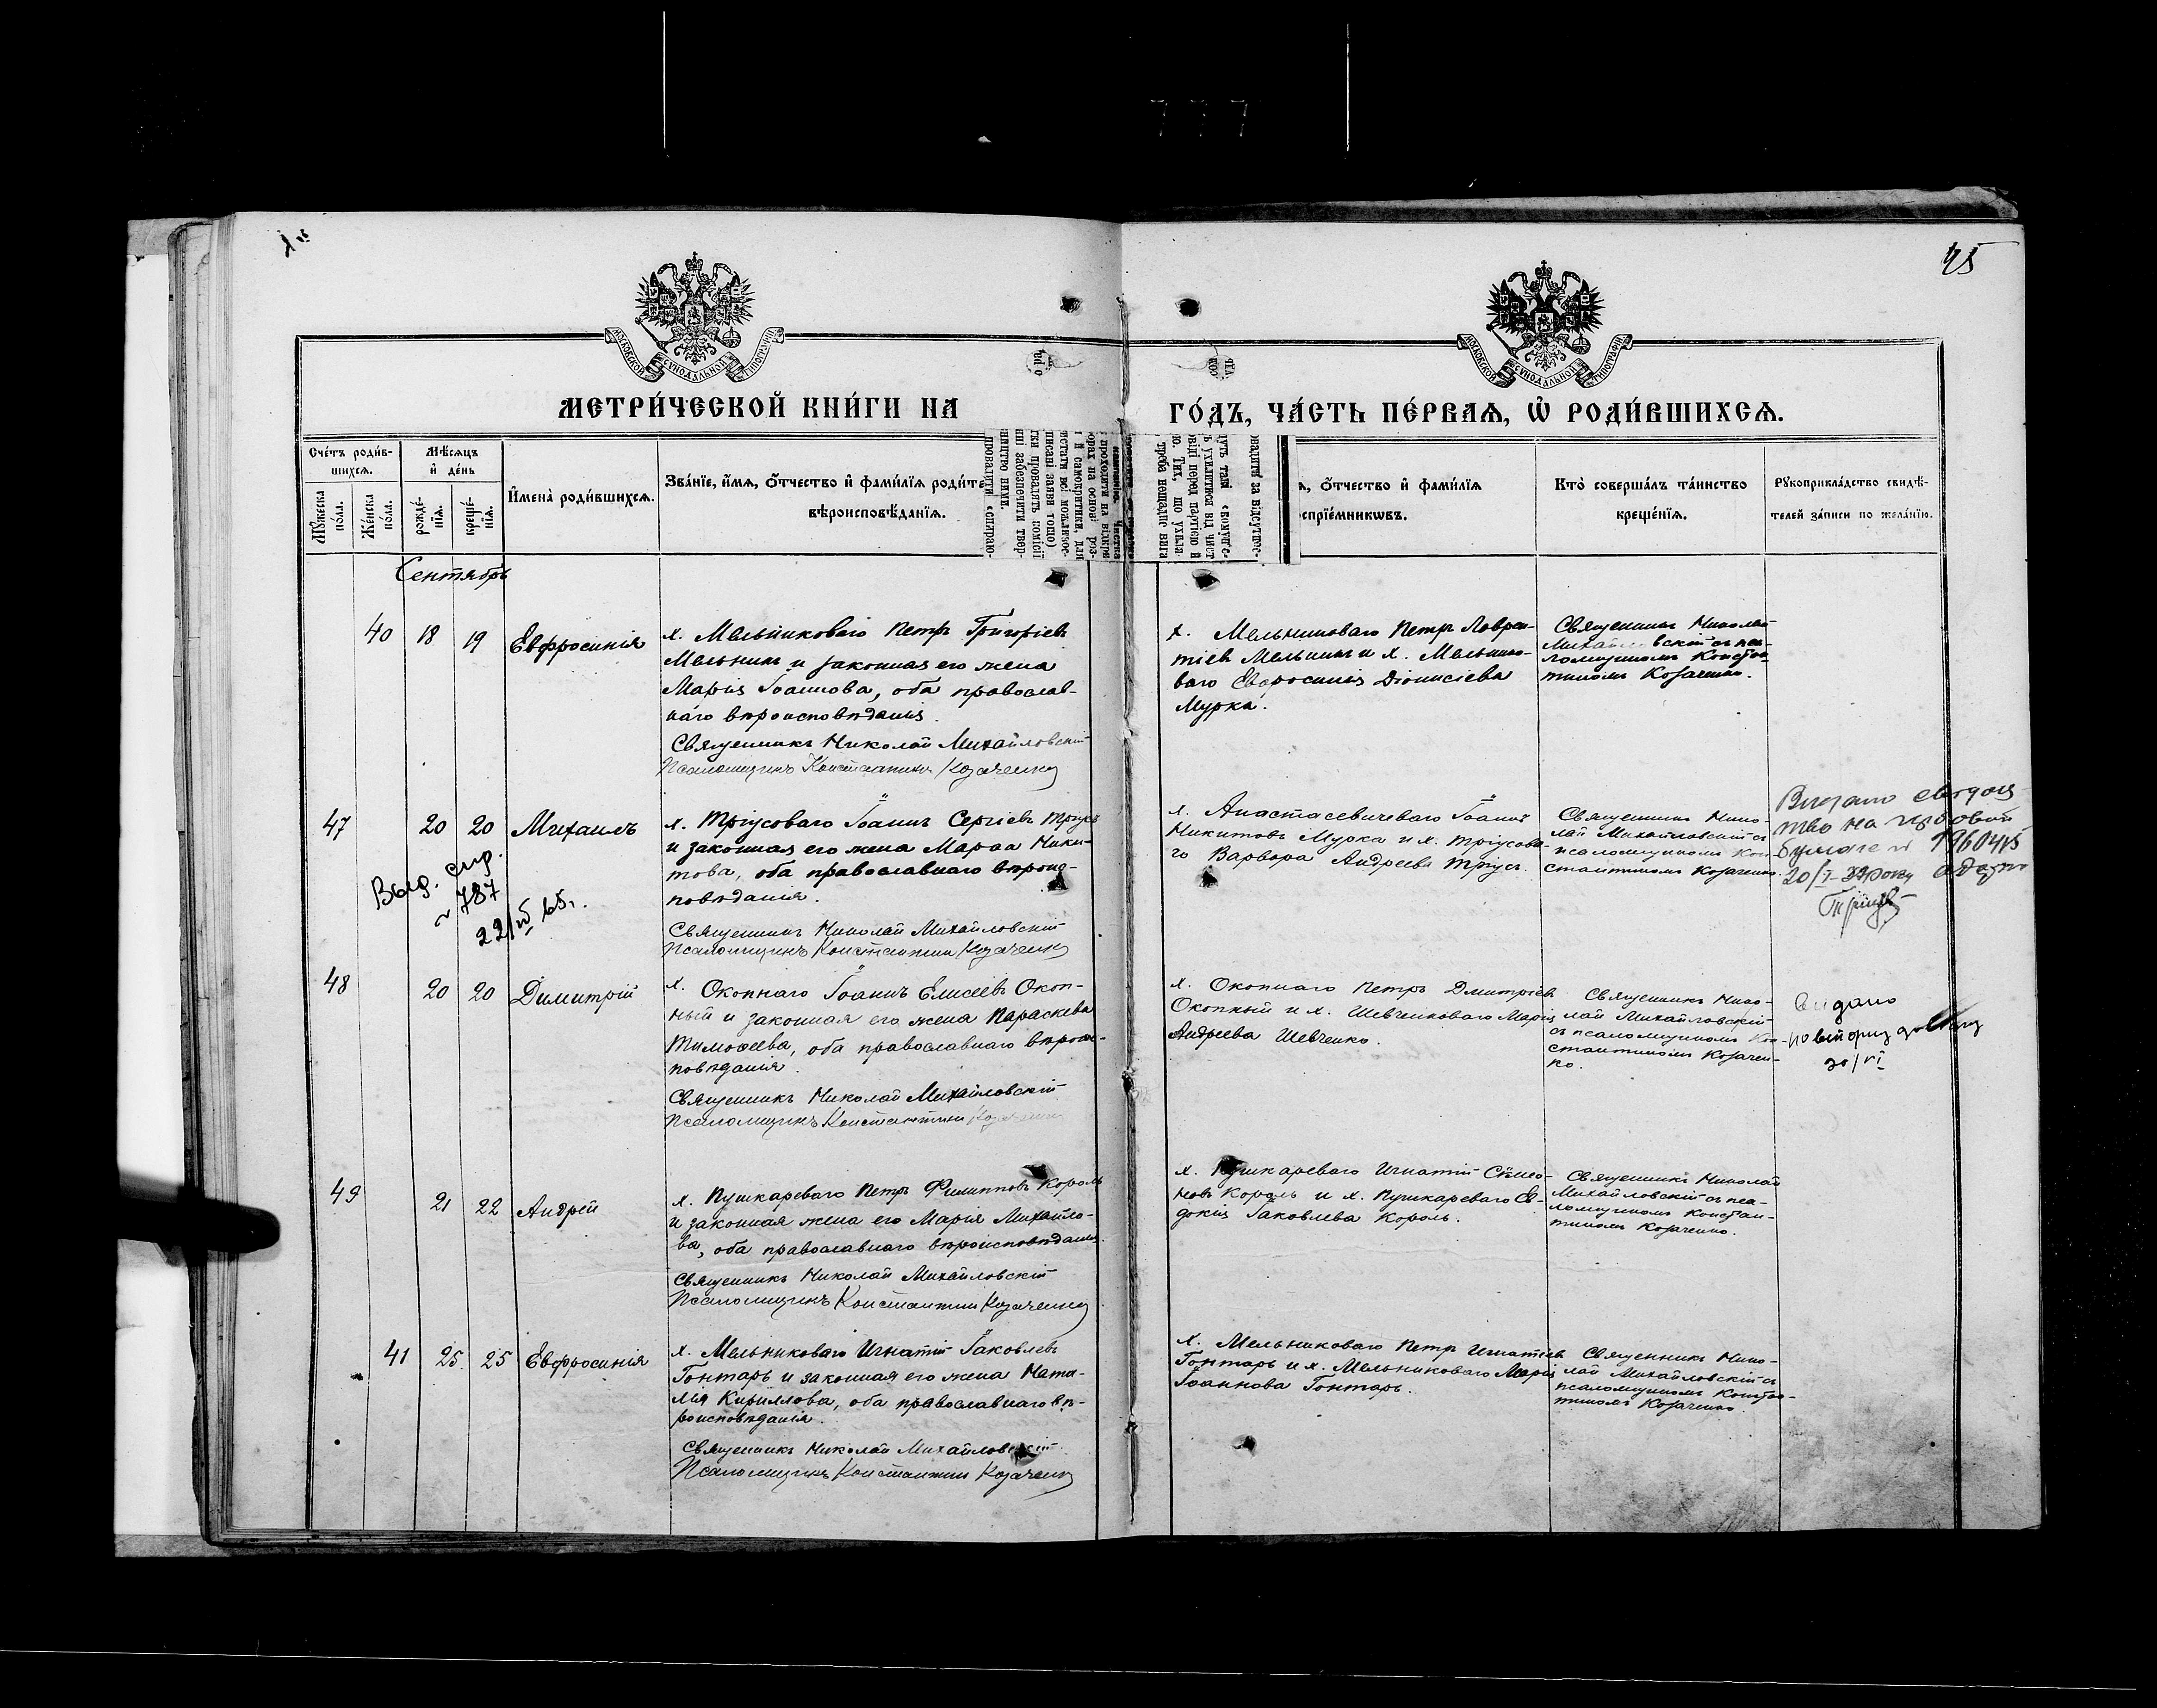 45
МОСКОВСКОЙ СѴНОДАЛЬНОЙ ТИПОГРАФІИ
МОСКОВСКОЙ СѴНОДАЛЬНОЙ ТИПОГРАФІИ
МЕТРИ́ЧЕСКОЙ КНИ́ГИ НА ГО́ДЪ, ЧА́СТЬ ПЕ́РВАѦ, Ѡ҆ РОДИ́ВШИХСѦ.
Сче́тъ роди́в-
шихсѧ.
Мꙋ́жеска по́ла.
Же́нска по́ла.
Мѣ́сѧцъ
и҆ де́нь
рожде́-
нїѧ.
креще́-
нїѧ.
И҆мена̀ роди́вшихсѧ.
Зва́нїе, и҆́мѧ, ѻ҆́тчество и҆ фами́лїѧ роди́те
вѣроисповѣ́данїѧ.
ѧ, ѻ҆́тчество и҆ фами́лїѧ
спрїе́мникѡвъ.
Кто̀ соверша́лъ та́инство
креще́нїѧ.
Рꙋкоприкла́дство свидѣ́-
телей за́писи по жела́нїю.
Сентябрь
40 18 19 Евфросинія
х. Мельниковаго Петръ Григоріевъ
Мельникъ и законная его жена
Марія Іоаннова, оба православ-
наго вѣроисповѣданія.
Священникъ Николай Михайловскій
Псаломщикъ Константинъ Козаченко
х. Мельниковаго Петръ Лаврен-
тіевъ Мельникъ и х. Мельнико-
ваго Евфросинія Діонисіева
Мурка.
Священникъ Николай
Михайловскій съ пса-
ломщикомъ Констан-
тиномъ Козаченко.
47 20 20 Михаилъ
х. Тріусоваго Іоаннъ Сергіевъ Тріусъ
и законная его жена Марѳа Ники-
това, оба православнаго вѣроис-
повѣданія.
Священникъ Николай Михайловскій
Псаломщикъ Константинъ Козаченко
х. Анастасевичеваго Іоаннъ
Никитовъ Мурка и х. Тріусова-
го Варвара Андреева Тріусъ.
Священникъ Нико-
лай Михайловскій съ
псаломщикомъ Кон-
стантиномъ Козаченко.
Выд. спр.
787
22/ 65г.
бумаге № 196045
20/I
48 20 20 Димитрій
х. Окопнаго Іоаннъ Елисеевъ Окоп-
ный и законная его жена Параскева
Тимоѳеева, оба православнаго вѣроис-
повѣданія.
Священникъ Николай Михайловскій
Псаломщикъ Константинъ Козаченко
х. Окопнаго Петръ Дмитріевъ
Окопный и х. Шевченковаго Марія
Андреева Шевченко.
Священникъ Нико-
лай Михайловскій
съ псаломщикомъ Кон-
стантиномъ Козачен-
ко.
Видано
30/VI
49 21 22 Андрей
х. Пушкареваго Петръ Филипповъ Король
и законная жена его Марія Михайло-
ва, оба православнаго вѣроисповѣданія.
Священникъ Николай Михайловскій
Псаломщикъ Константинъ Козаченко
х. Пушкареваго Игнатій Сѷмео-
новъ Король и х. Пушкареваго Ев-
докія Іаковлева Король.
Священникъ Николай
Михайловскій съ пса-
ломщикомъ Констан-
тиномъ Козаченко.
41 25 25 Евфросинія
х. Мельниковаго Игнатій Іаковлевъ
Гонтарь и законная его жена Ната-
лія Кириллова, оба православнаго вѣ-
роисповѣданія.
Священникъ Николай Михайловскій
Псаломщикъ Константинъ Козаченко
х. Мельниковаго Петръ Игнатіевъ
Гонтарь и х. Мельниковаго Марія
Іоаннова Гонтарь.
Священникъ Нико-
лай Михайловскій съ
псаломщикомъ Констан-
тиномъ Козаченко.